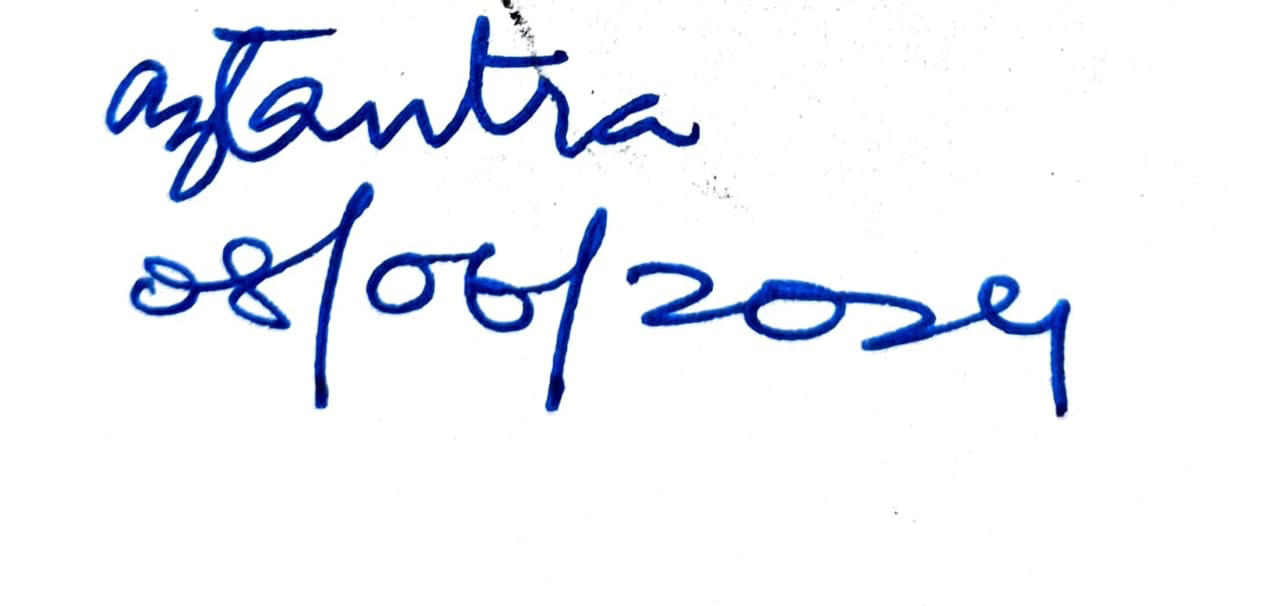 aztantra
08/06/2024